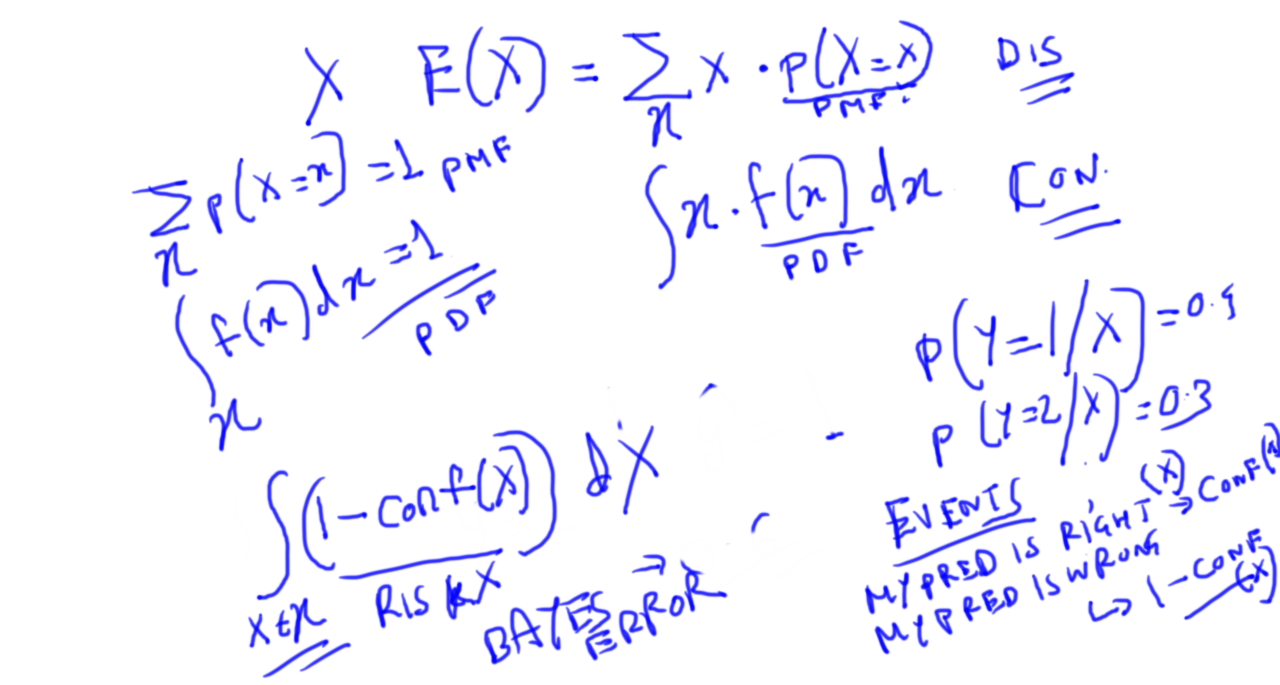 X E(X) = ∑ x · p(X=x) DIS
x PMF
∑ p(X=x) = 1 PMF
x
∫ x · f(x) dx CON.
PDF
∫ f(x) dx = 1
x PDF
p(Y=1/X) =
p(Y=2/X) = 0.3
∫ (1 - conf(X)) dX
X∈x RISK X
BAYES ERROR
EVENTS
MY PRED IS RIGHT (X) → CONF(
MY PRED IS WRONG
↳ 1 - CONF(X)